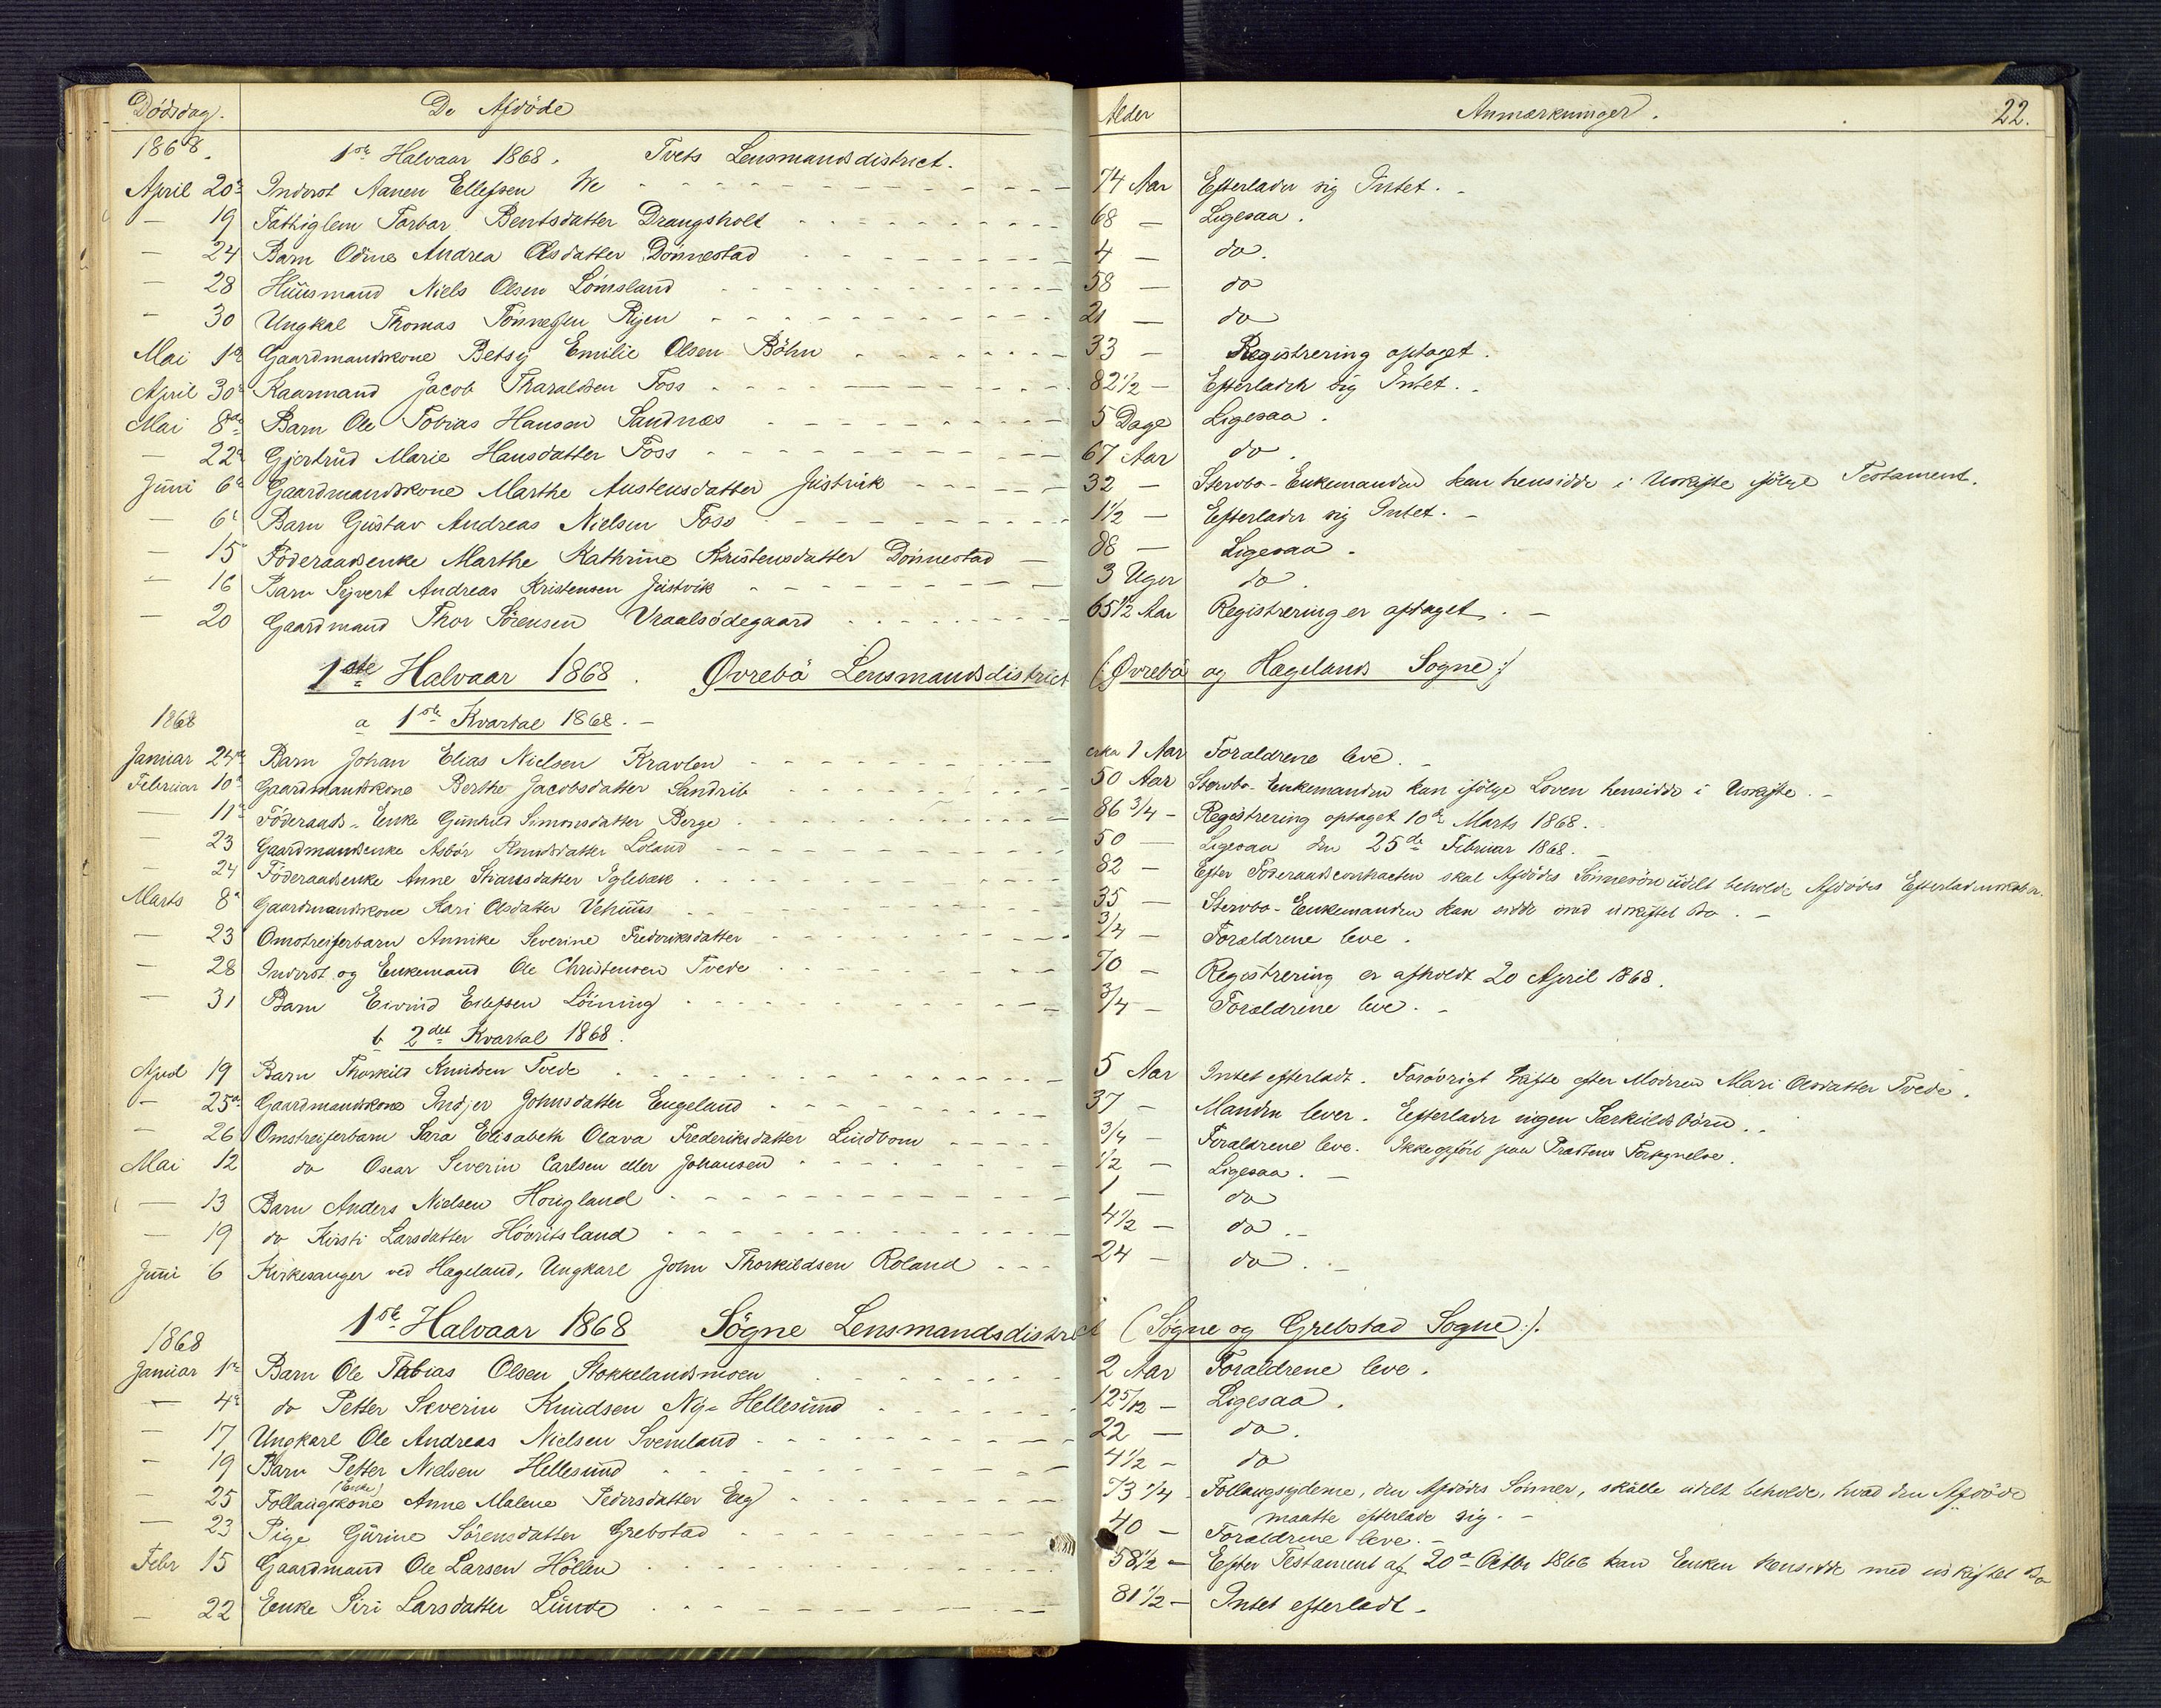 Dödsdag. De Afdöde Alder Anmærkninger. 22.
1868. 1ste Halvaar 1868. Tvets Lensmandsdistrict.
April 20de Inderst Aanen Ellefsen We 74 Aar Efterlader sig Intet.
— 19 Fattiglem Torbor Bentsdatter Drangsholt 68 — Ligesaa.
— 24 Barn Odine Andrea Olsdatter Dönnestad 4 — do.
— 28 Huusmand Niels Olsen Lömsland 58 — do
— 30 Ungkal Thomas Tönnesen Ryen 21 — do
Mai 1ste Gaardmandskone Betsy Emilie Olsen Böhn 33 — Registrering optaget.
April 30de Kaarmand Jacob Tharaldsen Foss 82 1/2 — Efterlader sig Intet.
Mai 8de Barn Ole Tobias Hansen Sandnæs 5 Dage Ligesaa.
— 22de Gjertrud Marie Hansdatter Foss 67 Aar do.
Juni 6te Gaardmandskone Marthe Austensdatter Justvik 32 — Stervbo-Enkemanden kan hensidde i Uskifte ifölge Testament.
— 6te Barn Gustav Andreas Nielsen Foss 1 1/2 — Efterlader sig Intet.
— 15 Föderaadsenke Marthe Kathrine Kristensdatter Dönnestad 88 — Ligesaa.
— 16 Barn Syvert Andreas Kristensen Justvik 3 Uger do.
— 20 Gaardmand Thor Sörensen Vraalsödegaard 65 1/2 Aar Registrering er optaget.
1ste Halvaar 1868. Øvrebö Lensmandsdistrict (: Øvrebö og Hægelands Sogne :)
1868 a 1ste Kvartal 1868.
Januar 24de Barn Johan Elias Nielsen Kravlen cirka 1 Aar Forældrene leve.
Februar 10de Gaardmandskone Berthe Jacobsdatter Sandrib 50 Aar Stervbo-Enkemanden kan ifölge Loven hensidde i Uskifte.
— 11te Föderaads-Enke Gunhild Simonsdatter Berge 86 3/4 — Registrering optaget 10de Marts 1868.
— 23 Gaardmandsenke Asbör Knudsdatter Loland 50 — Ligesaa den 25de Februar 1868.
— 24 Föderaadsenke Anne Iglebæk 82 — Efter Föderaadscontracten skal Afdödes Sönnesön udelt beholde Afdödes
Marts 8de Gaardmandskone Kari Olsdatter Vehuus 35 — Stervbo-Enkemanden kan sidde med uskiftet Bo.
— 23 Omstreiferbarn Annike Severine Frederiksdatter 3/4 — Forældrene leve.
— 28 Inderst og Enkemand Ole Christensen Tvede 70 — Registrering er afholdt 20 April 1868.
— 31 Barn Eivind Eilefsen Löining 3/4 — Forældrene leve.
b 2det Kvartal 1868.
April 19 Barn Thorkild Knudsen Tvede 5 Aar Intet efterladt. Forövrigt Skifte efter Moderen Mari Olsdatter Tvede.
— 25de Gaardmandskone Indjer Johnsdatter Engeland 37 — Manden lever. Efterlader ingen Særkuldsbörn.
— 26 Omstreiferbarn Sara Elisabeth Olava Frederiksdatter Lindbom 3/4 — Forældrene leve. Ikke opfört paa Præstens Fortegnelse.
Mai 12 do Oscar Severin Carlsen eller Johansen 1/2 — Ligesaa.
— 13 Barn Anders Nielsen Hougland 1 — do
— 19 do Kirsti Larsdatter Hövritsland 4 1/2 — do
Juni 6 Kirkesanger ved Hægeland, Ungkarl John Thorkildsen Roland 24 — do.
1ste Halvaar 1868 Sögne Lensmandsdistrict (: Sögne og Grebstad Sogne :).
1868
Januar 1ste Barn Ole Tobias Olsen Stokkelandsmoen 2 Aar Forældrene leve.
— 4de do Petter Severin Knudsen Ny-Hellesund 12 5/12 — Ligesaa.
— 17 Ungkarl Ole Andreas Nielsen Svenland 22 — do.
— 19 Barn Petter Nielsen Hellesund 4 1/2 — do
— 25 Follaugskone (Enke) Anne Malene Pedersdatter Eeg 73 1/4 Follaugsyderne, den Afdödes Sönner, skulle udelt beholde, hvad den Afdöde
maatte efterlade sig.
— 23 Pige Gurine Sörensdatter Grebstad 40 — Forældrene leve.
Febr 15 Gaardmand Ole Larsen Höllen 58 1/2 — Efter Testament af 20de Octbr 1866 kan Enken hensidde med uskiftet Bo
— 22 Enke Siri Larsdatter Lunde 81 1/2 — Intet efterladt.